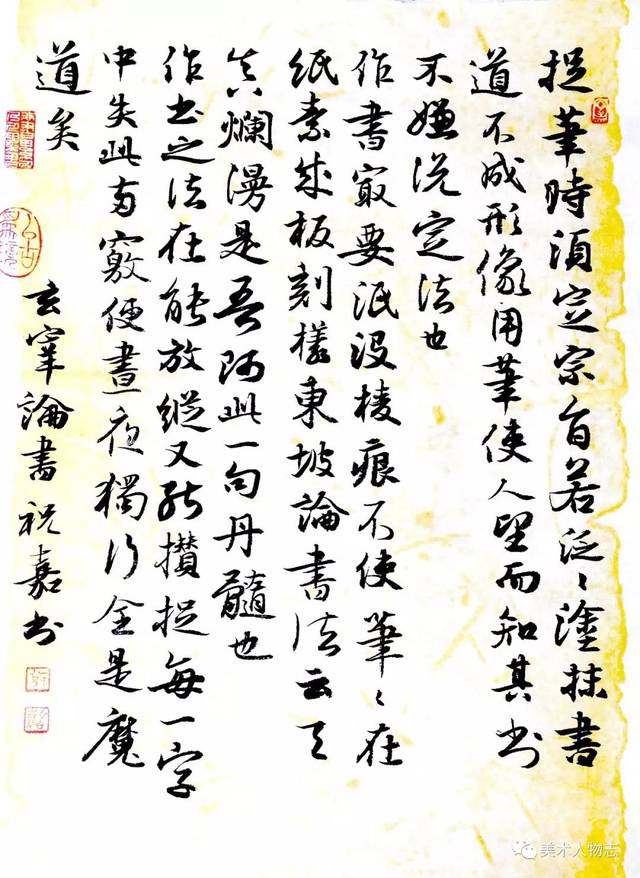 捉筆時須定宗旨若泛〻塗抹書
道不成形像用筆使人望而知其书
不嫌説定法也
作書最要泯没棱痕不使筆〻在
紙素成板刻樣東坡論書法云天
真爛漫是吾師此一句丹髓也
作书之法在能放縱又能攢捉每一字
中失此兩竅便晝夜獨行全是魔
道矣
玄宰論書祝嘉书
美术人物志